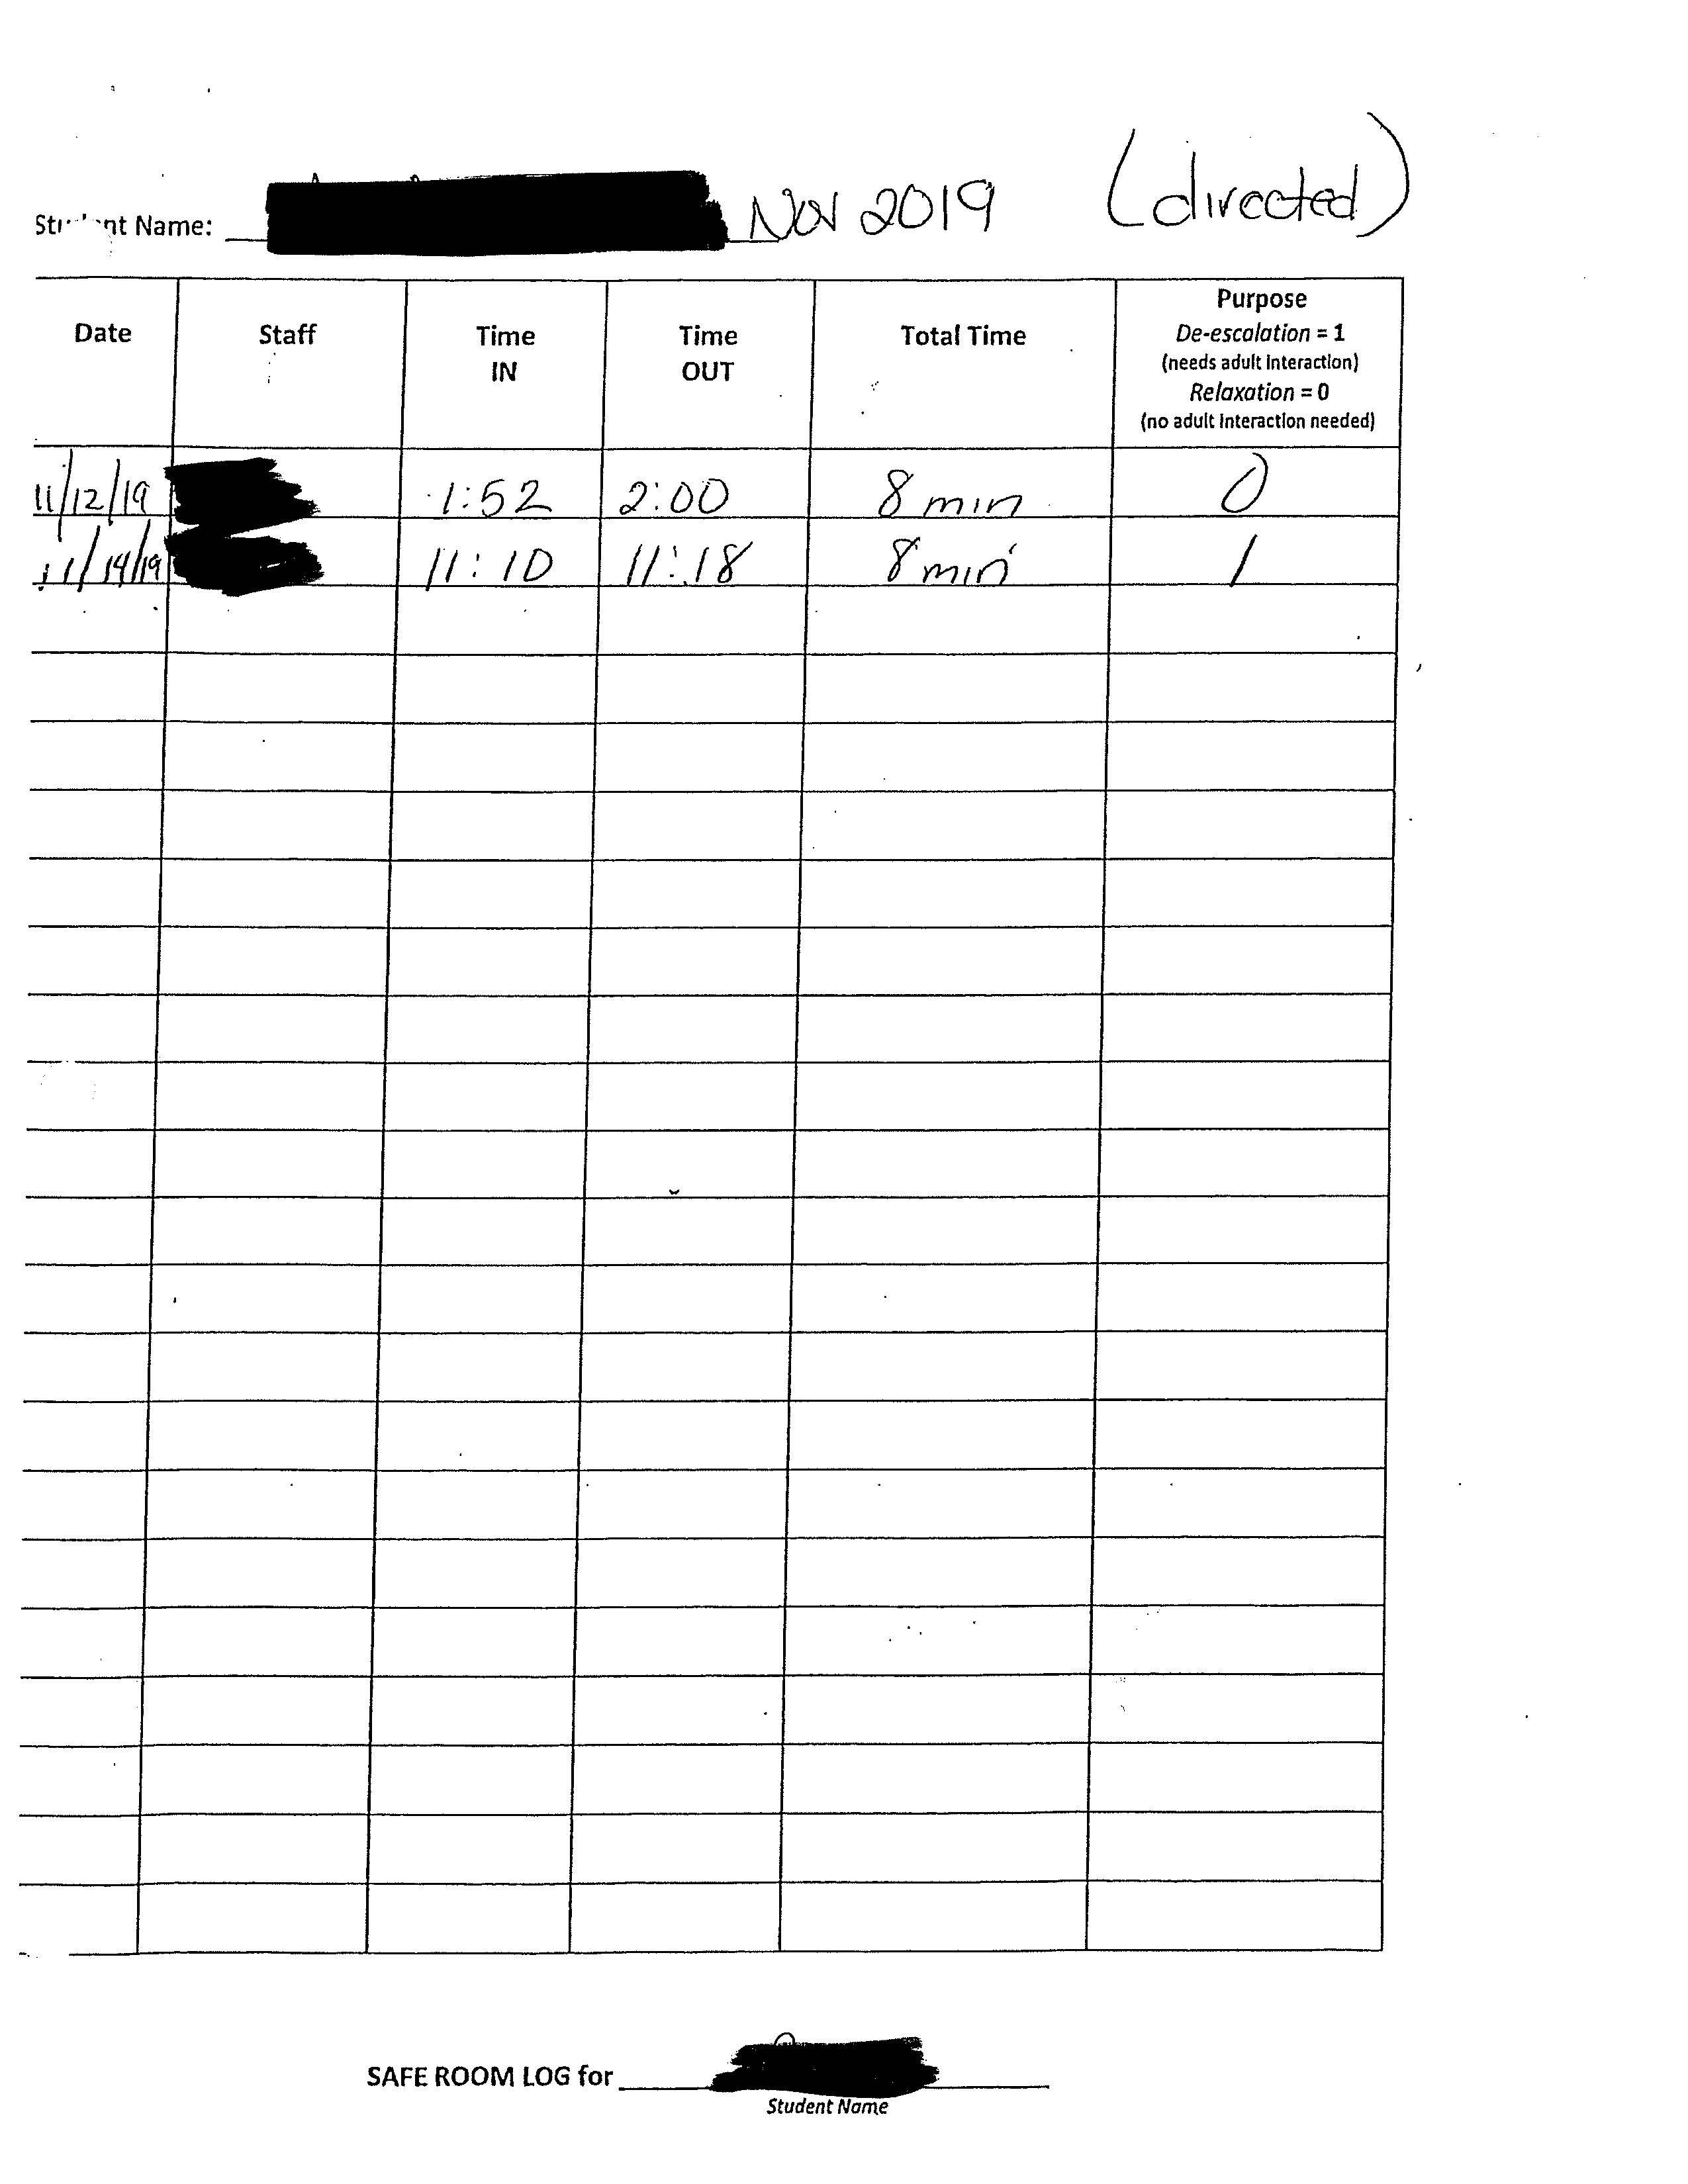 Student Name: Nov 2019 (directed)
Date Staff Time IN Time OUT Total Time Purpose
De-escalation = 1
(needs adult interaction)
Relaxation = 0
(no adult interaction needed)
11/12/19 1:52 2:00 8 min 0
11/14/19 11:10 11:18 8 min 1
SAFE ROOM LOG for
Student Name